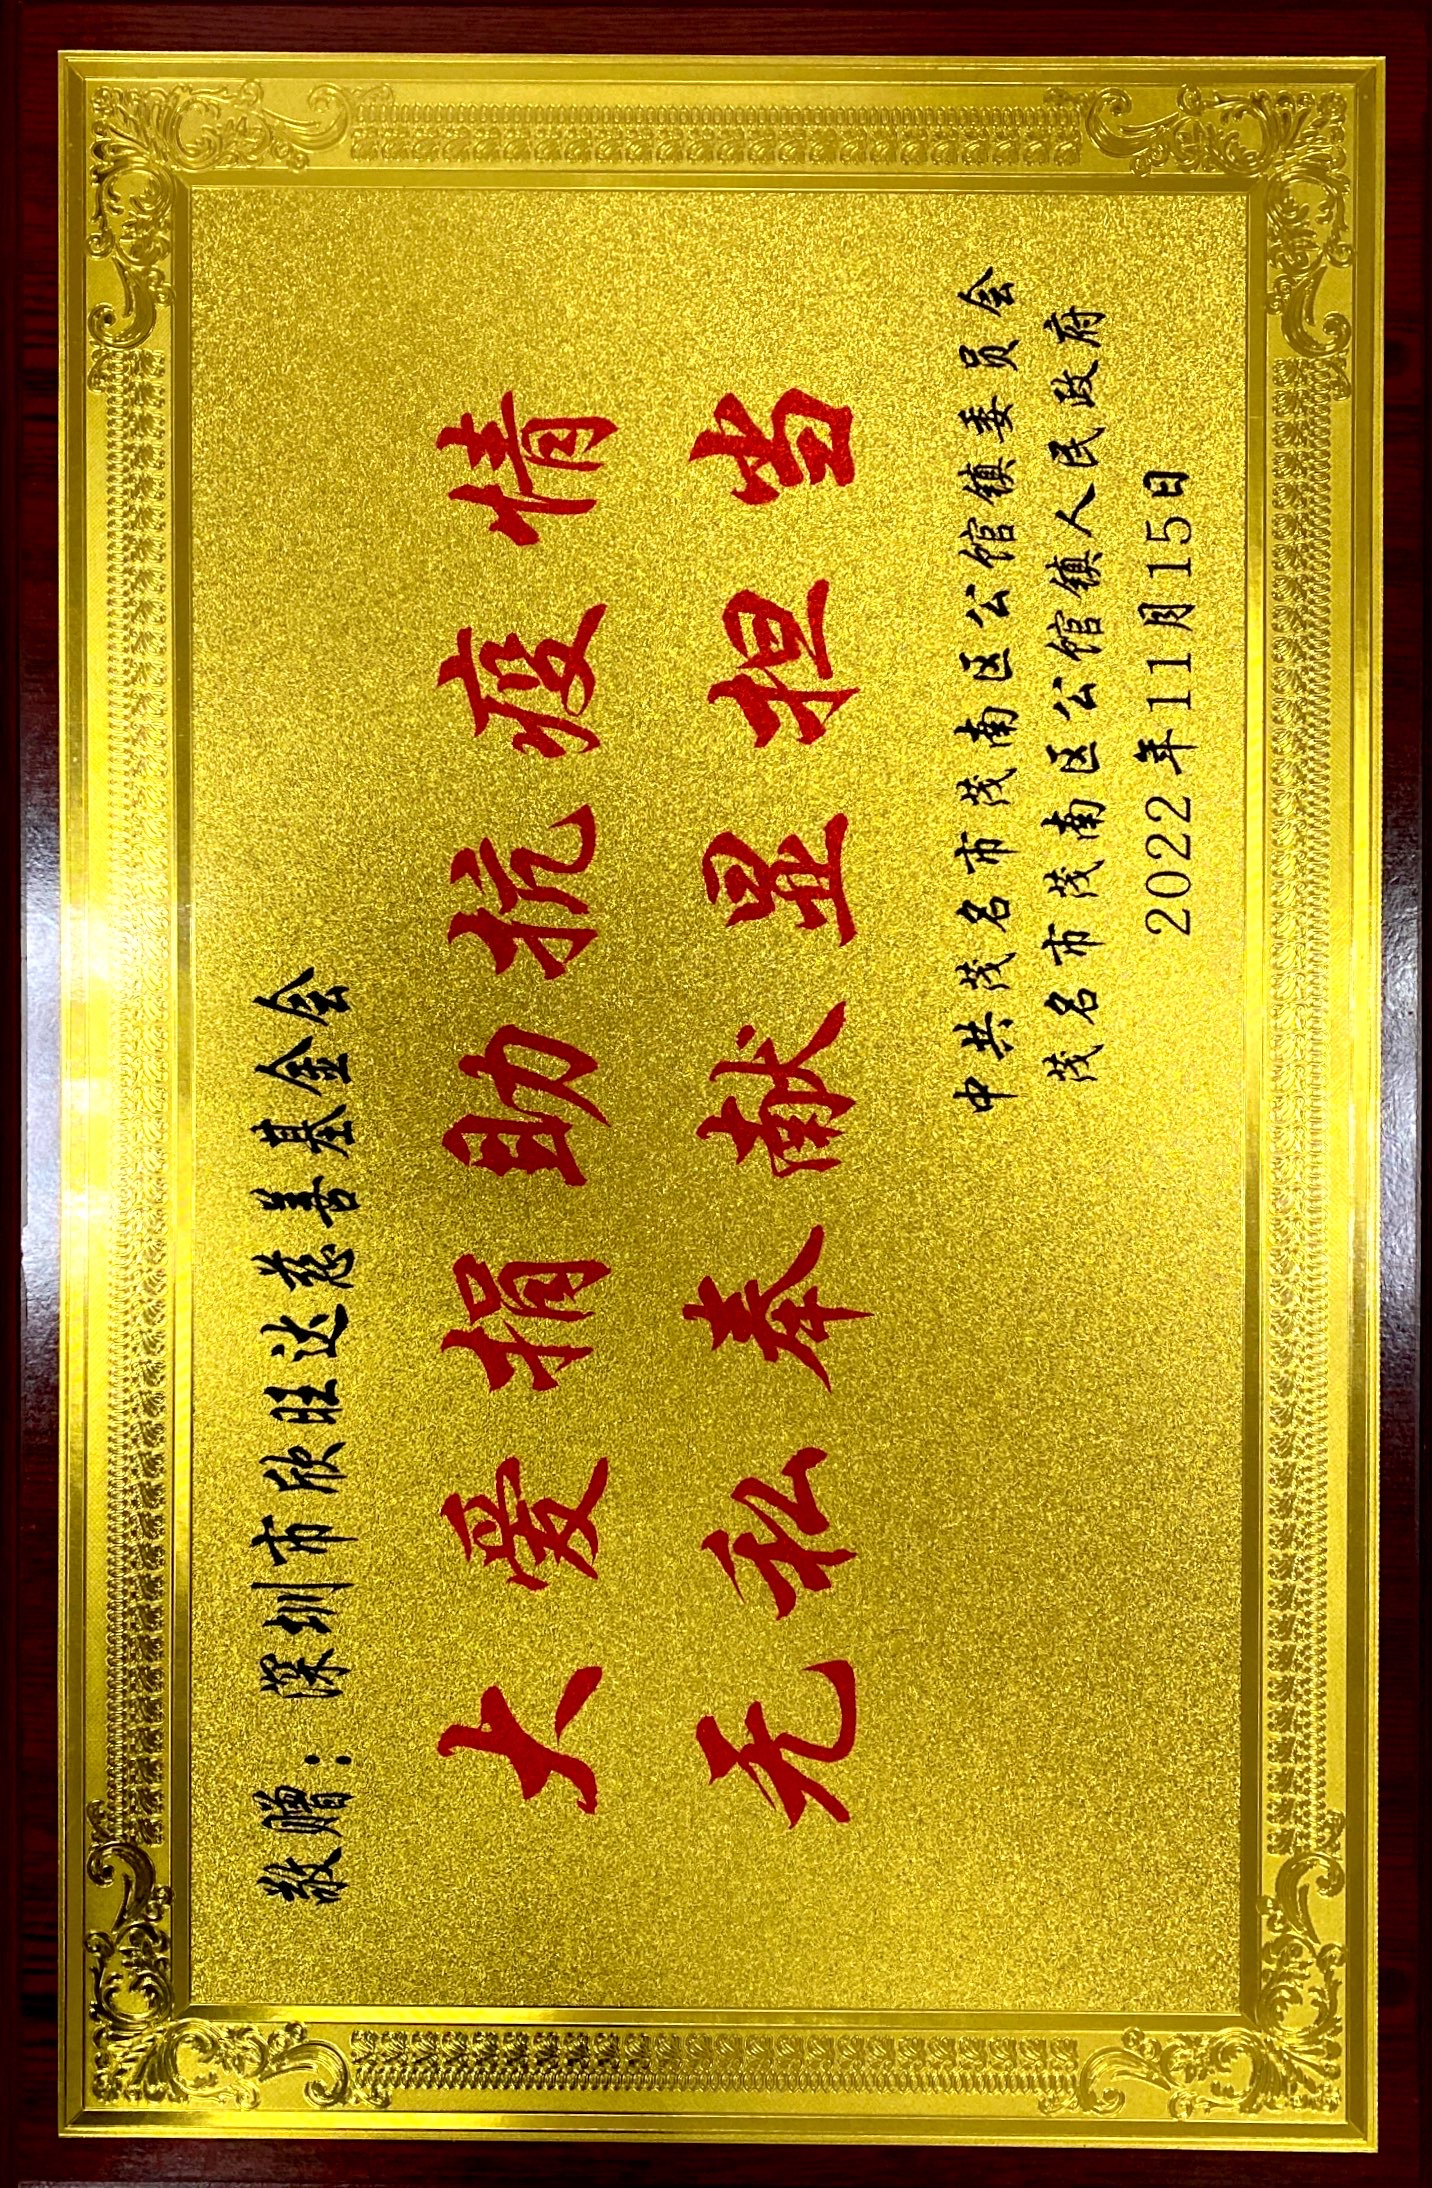 敬赠：深圳市欣旺达慈善基金会
大爱捐助抗疫情
无私奉献显担当
中共茂名市茂南区公馆镇委员会
茂名市茂南区公馆镇人民政府
2022年11月15日